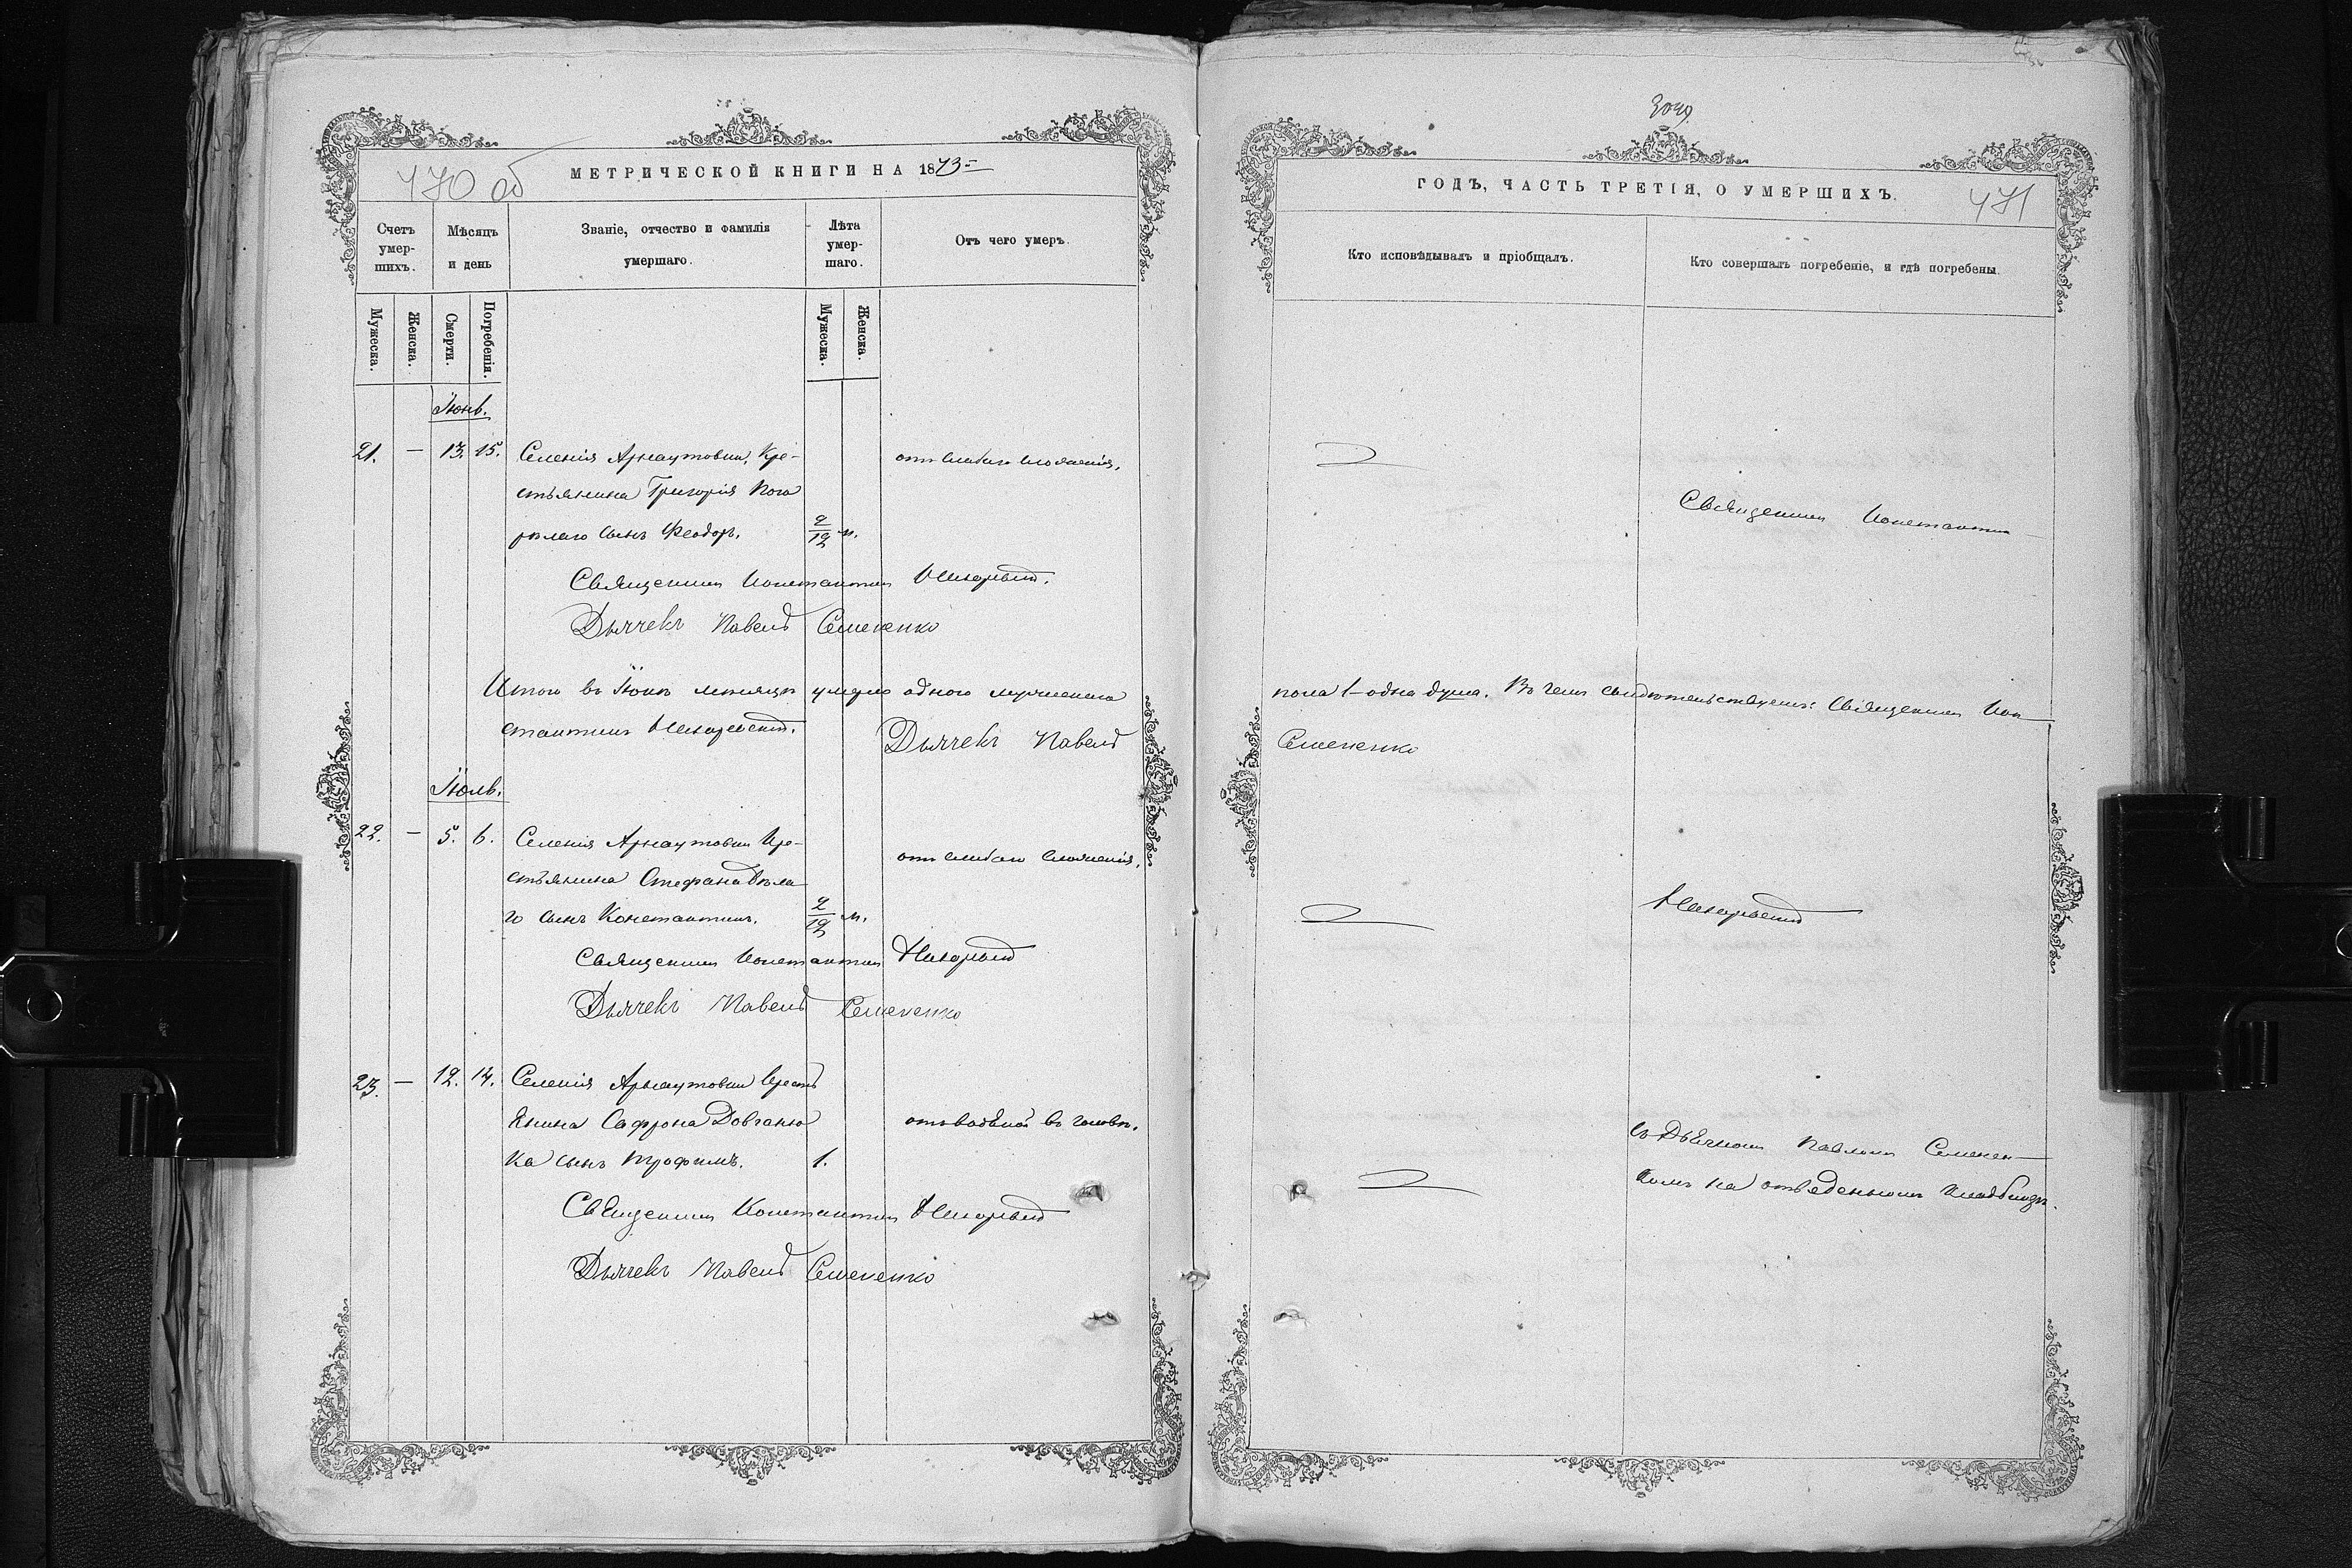 470 об
МЕТРИЧЕСКОЙ КНИГИ НА 1873
Счетъ умер-шихъ.
Мѣсяцъ и день
Званіе, отчество и фамилія умершаго.
Лѣта умер-шаго.
Отъ чего умеръ.
Мужеска.
Женска.
Смерти.
Погребенія.
Мужеска.
Женска.
Іюнь.
21. — 13. 15. Селенія Арнаутовки, кре-
отъ слабаго сложенія.
стьянина Григорія Пого
рѣлаго сынъ Феодоръ. 2/12 м.
Священникъ Константинъ
Дьячекъ Павелъ Семененко
Итого въ Іюнѣ мѣсяцѣ умерло одного мужескаго
стантинъ
Дьячекъ Павелъ
Іюль.
22. — 5. 6. Селенія Арнаутовки кре-
отъ слабаго сложенія.
стьянина Стефана Бѣла
го сынъ Константинъ. 2/12 м.
Священникъ Константинъ
Дьячекъ Павелъ Семененко
23. — 12. 14. Селенія Арнаутовки крестъ
янина Сафрона Довганю
отъ водяной въ головѣ.
ка сынъ Трофимъ. 1.
Священникъ Константинъ
Дьячекъ Павелъ Семененко
ГОДЪ, ЧАСТЬ ТРЕТІЯ, О УМЕРШИХЪ.
471
Кто исповѣдывалъ и пріобщалъ.
Кто совершалъ погребеніе, и гдѣ погребены.
Священникъ Константинъ
пола 1 – одна душа. Въ чемъ свидѣтельствуемъ: Священникъ Кон
Семененко
съ Дьячкомъ Павломъ Семенен
комъ на отведенномъ кладбищѣ.